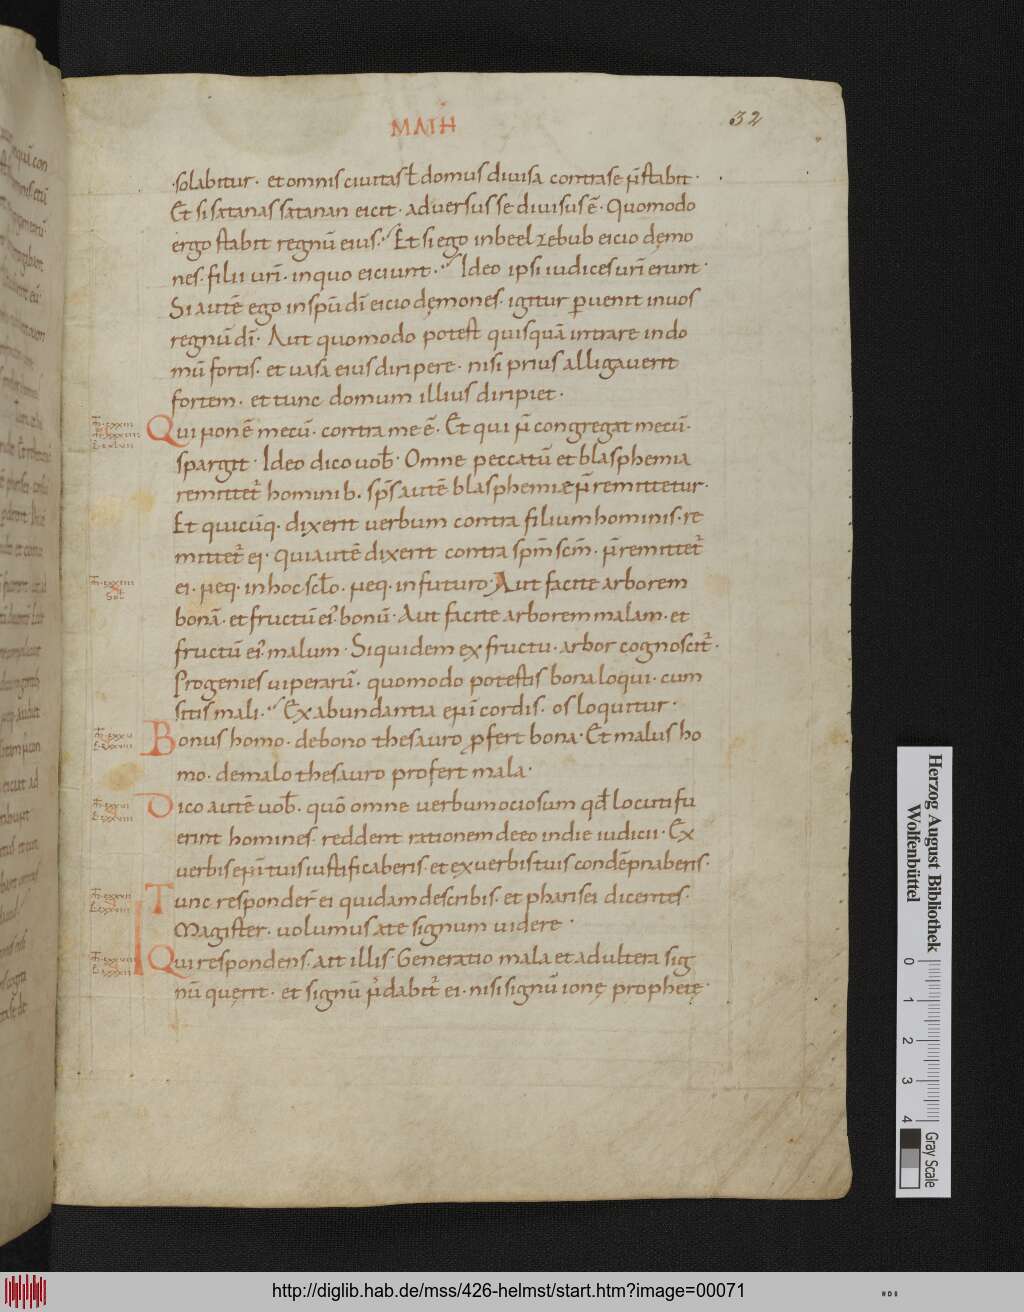 MATH
32
solabitur· et omnis ciuitas ł domus diuisa contra se ñ stabit·
Et si satanas satanan eicit· aduersus se diuisus ē· Quomodo
ergo stabit regnū eius· Et si ego in beelzebub eicio dęmo
nes· filii ur̄i· in quo eiciunt· Ideo ipsi iudices ur̄i erunt·
Si autē ego in sp̄u dī eicio dęmones· igitur ꝑuenit in uos
regnū dī· Aut quomodo potest quisquā intrare in do
mū fortis· et uasa eius diripere· nisi prius alligauerit
fortem· et tunc domum illius diripiet·
Qui ñ on ē mecū· contra me ē· Et qui ñ congregat mecū·
spargit· Ideo dico uob̄· Omne peccatū et blasphemia
remittet᷑ hominib· sp̄s autē blasphemiæ ñ remittetur·
Et quicūq· dixerit uerbum contra filium hominis· re
mittet᷑ ei· qui autē dixerit contra sp̄m sc̄m· ñ remittet᷑
ei· neq· in hoc scło· neq· in futuro· Aut facite arborem
bonā· et fructū ei᷒ bonū· Aut facite arborem malam· et
fructū ei᷒ malum· Siquidem ex fructu· arbor cognoscit᷑·
Progenies uiperarū· quomodo potestis bona loqui· cum
sitis mali· Ex abundantia enī cordis· os loquitur·
Bonus homo· de bono thesauro ꝓfert bona· Et malus ho
mo· de malo thesauro profert mala·
Dico autē uob̄· quō omne uerbum ociosum qđ locuti fu
erint homines· reddent rationem de eo in die iudicii· Ex
uerbis enī tuis iustificaberis· et ex uerbis tuis condēpnaberis·
Tunc responder̄ ei quidam de scribis· et pharisei dicentes·
Magister· uolumus a te signum uidere·
Qui respondens· ait illis Generatio mala et adultera sig
nū querit· et signū ñ dabit᷑ ei· nisi signū ionę prophetę·
Herzog August Bibliothek
Wolfenbüttel
0 1 2 3 4
Gray Scale
http://diglib.hab.de/mss/426-helmst/start.htm?image=00071